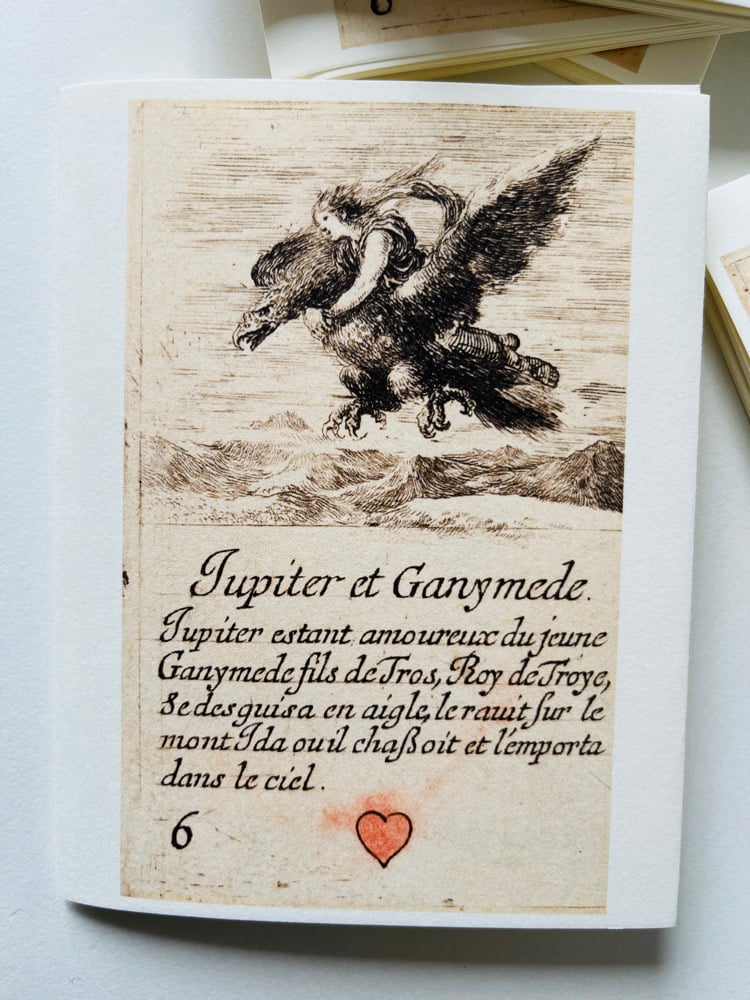 Jupiter et Ganymede.
Jupiter estant amoureux du jeune
Ganymede fils de Tros, Roy de Troye,
Se desguisa en aigle, le rauit ſur le
mont Ida ou il chaſsoit et l'emporta
dans le ciel.
6